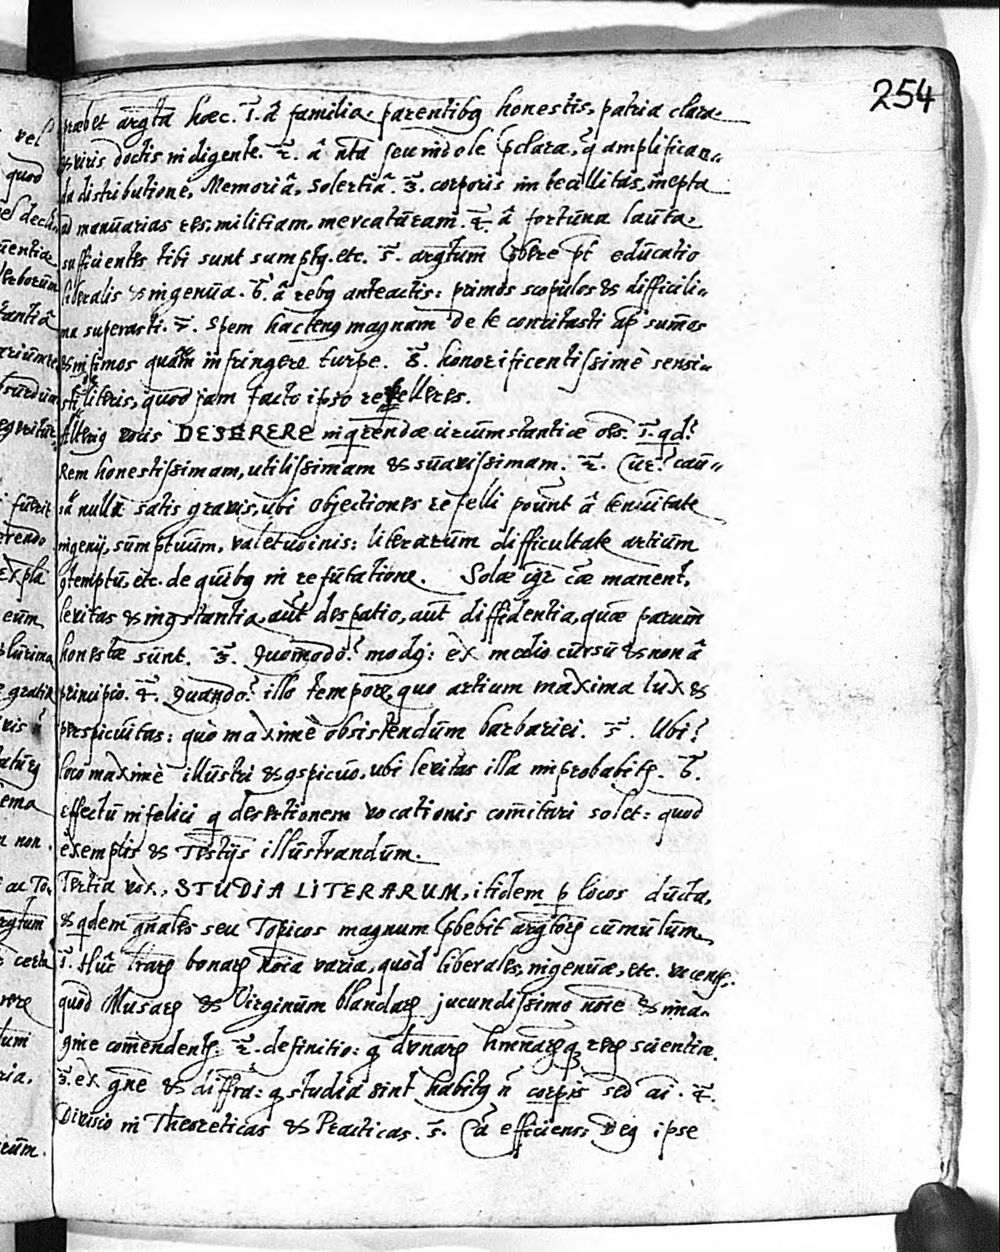 254
præbet argta hæc. 1. â familia, parentibꝰ honestis, patria clara
& viris doctis indigente. 2. â nta seu indole pclara, q amplifican=
da distributione, Memoriâ, solertiâ. 3. corporis imbecillitas, inepta
ad manuarias res, militiam, mercaturam. 4. â fortuna lauta,
sufficientes tibi sunt sumptꝰ. etc. 5. argtum pbere pt educatio
liberalis & ingenua. 6. â rebꝰ anteactis: primos scopulos & difficili=
ma superasti. 7. Spem hactenꝰ magnam de te concitasti ap sum̄os
& infimos quam infringere turpe. 8. honorificentissimè sensi=
sti de literis, quod jam facto ipso refelleres.
Alteriꝰ vocis DESERERE inqrendæ circumstantiæ oes. 1. qd?
Rem honestissimam, utilissimam & suavissimam. 2. Cur? cau=
sâ nullâ satis gravis, ubi objectiones refelli pount â tenuitate
ingenij, sumptuum, valetudinis: literarum difficultate artium
ꝯtemptu, etc. de quibꝰ in refutatione. Solæ igr cæ manent,
levitas & inꝯstantia, aut despatio, aut diffidentia, quæ parum
honestæ sunt. 3. Quomodo? modꝰ: ex medio cursu & non â
principio. 4. Quando? illo tempore, quo artium maxima lux &
perspicuitas: quò maximè obsistendum barbariei. 5. Ubi?
loco maximè illustri & ꝯspicuo, ubi levitas illa improbabitr. 6.
Effectu infelici q desertionem vocationis com̄itari solet: quod
exemplis & Testijs illustrandum.
Tertia vox, STUDIA LITERARUM, itidem p locos ducta,
& qdem gnales seu Topicos magnum pbebit argtorꝝ cumulum.
1. Huc lrarꝝ bonarꝝ noīa varia, quòd liberales, ingenuæ, etc. vocentr.
quòd Musarꝝ & Virginum blandarꝝ jucundissimo noīe & ima=
gine com̄endentr. 2. definitio: q divinarꝝ humnarꝝqꝫ rerꝝ scientiæ.
3. ex gne & diffra: q studia sint habitꝰ n̄ corpis sed ai. 4.
Divisio in Theoreticas & Practicas. 5. Câ efficiens: Deꝰ ipse